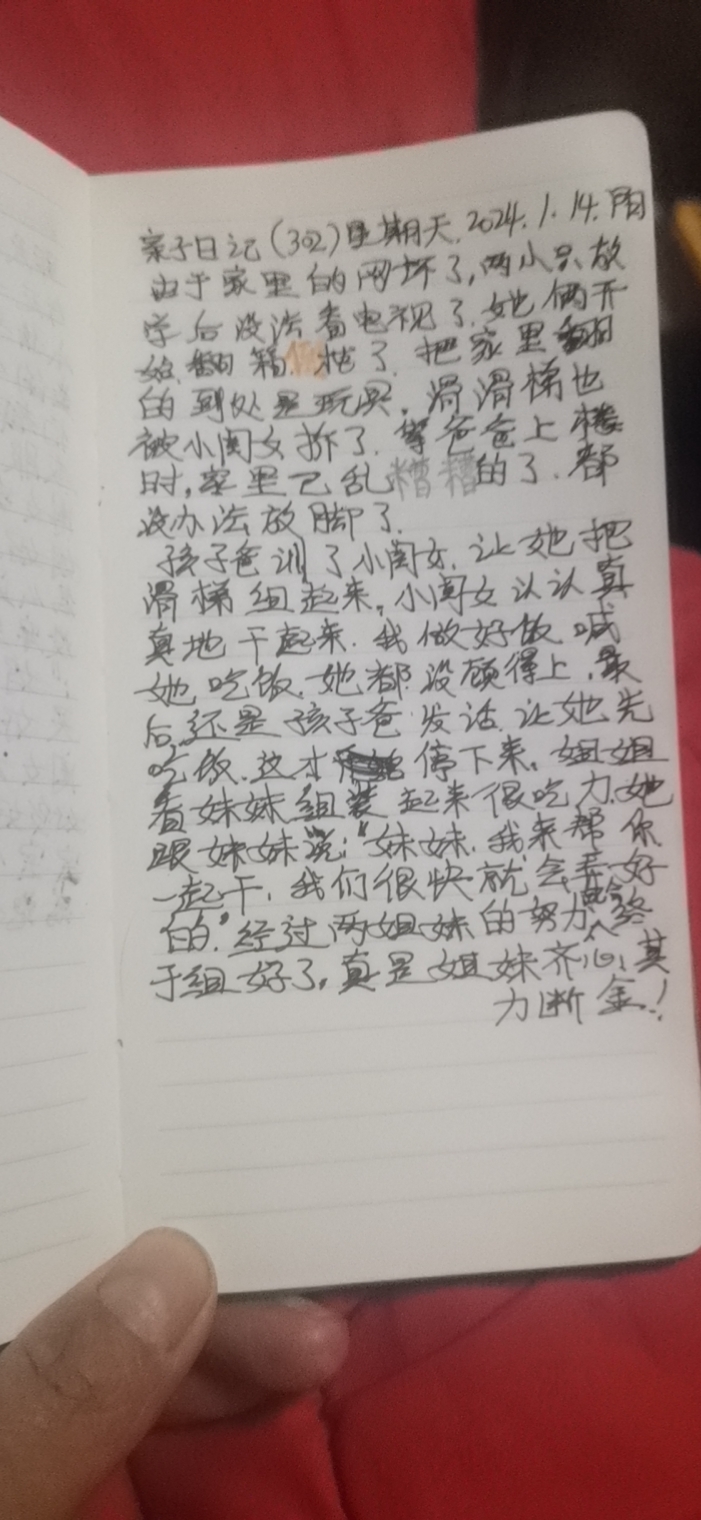 亲子日记(302)星期天.2024.1.14.阴
由于家里的网坏了,两小只放
学后没法看电视了.她俩开
始翻箱倒柜了.把家里翻
的到处是玩具.滑滑梯也
被小闺女拆了.等爸爸上楼
时,家里已乱糟糟的了.都
没办法放脚了.
孩子爸训了小闺女.让她把
滑梯组起来,小闺女认认真
真地干起来.我做好饭喊
她吃饭.她都没顾得上,最
后还是孩子爸发话.让她先
吃饭.这才停下来.姐姐
看妹妹组装起来很吃力.她
跟妹妹说:"妹妹.我来帮你
一起干,我们很快就会弄好
的."经过两姐妹的努力,终
于组好了,真是姐妹齐心,其
力断金!